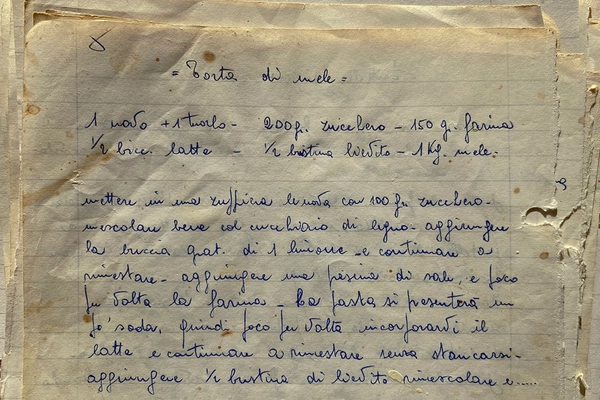 = Torta di mele =
1 uovo + 1 tuorlo - 200 gr. zucchero - 150 g. farina
1/2 bicc. latte - 1/2 bustina lievito - 1 Kg. mele.
mettere in una zuppiera le uova con 100 gr zucchero -
mescolare bene col cucchiaio di legno - aggiungere
la buccia grat. di 1 limone - e continuare a
rimestare - aggiungere una presina di sale, e poco
per volta la farina - La pasta si presenterà un
po' soda, quindi poco per volta incorporarvi il
latte e continuare a rimestare senza stancarsi -
aggiungere 1/2 bustina di lievito rimescolare e.....